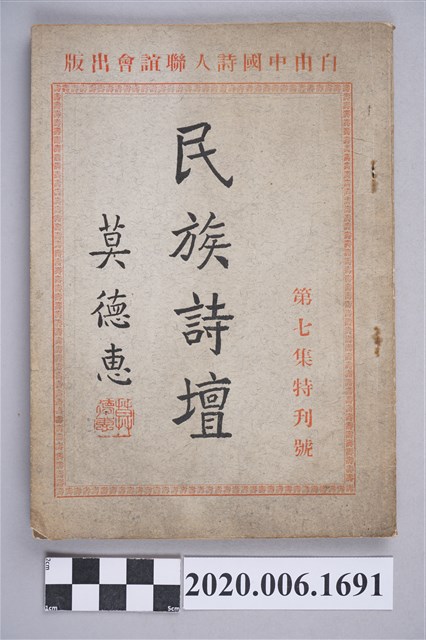 自由中國詩人聯誼會出版
第七集特刊號
民族詩壇
莫德惠
2cm
1cm
5cm
2020.006.1691